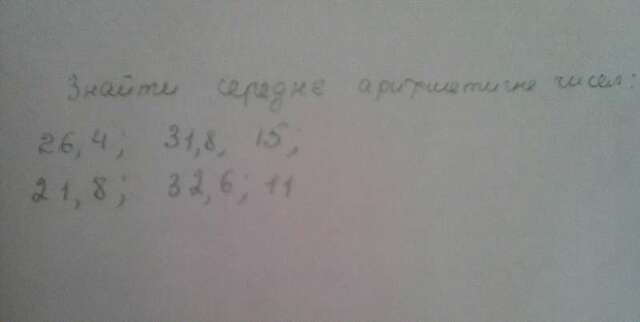 Знайти середнє аритметичне чисел:
26,4; 31,8, 15;
21,8; 32,6; 11